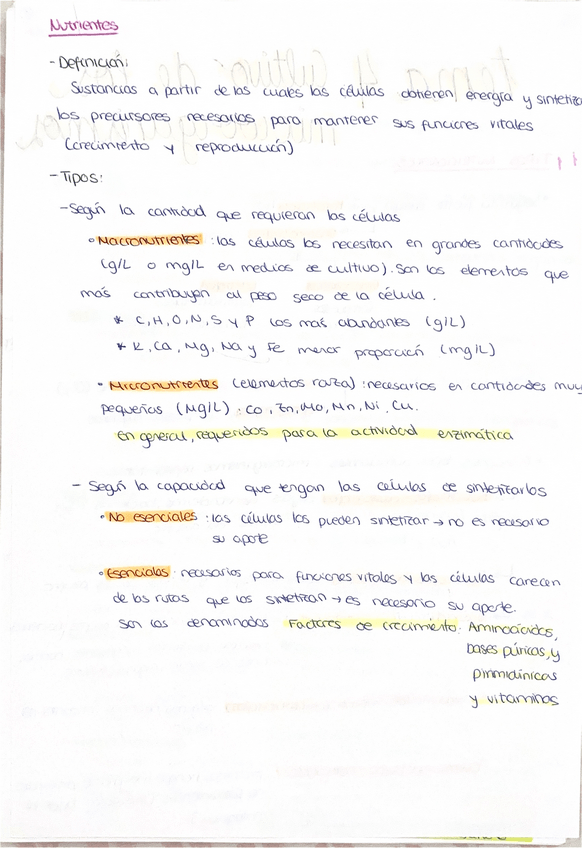 Nutrientes
- Definición:
Sustancias a partir de las cuales las células obtienen energía y sintetiza
los precursores necesarios para mantener sus funciones vitales
(crecimiento y reproducción)
- Tipos:
- Según la cantidad que requieran las células
• Macronutrientes: las células los necesitan en grandes cantidades
(g/L o mg/L en medios de cultivo). Son los elementos que
más contribuyen al peso seco de la célula.
* C, H, O, N, S y P los más abundantes (g/L)
* K, Ca, Mg, Na y Fe menor proporción (mg/L)
• Micronutrientes (elementos traza): necesarios en cantidades muy
pequeñas (Mg/L): Co, Zn, Mo, Mn, Ni, Cu.
En general, requeridos para la actividad enzimática
- Según la capacidad que tengan las células de sintetizarlos
• No esenciales: las células los pueden sintetizar → no es necesario
su aporte
• Esenciales: necesarios para funciones vitales y las células carecen
de las rutas que los sintetizan → es necesario su aporte.
Son los denominados Factores de crecimiento: Aminoácidos,
bases púricas, y
pirimidínicas
y vitaminas